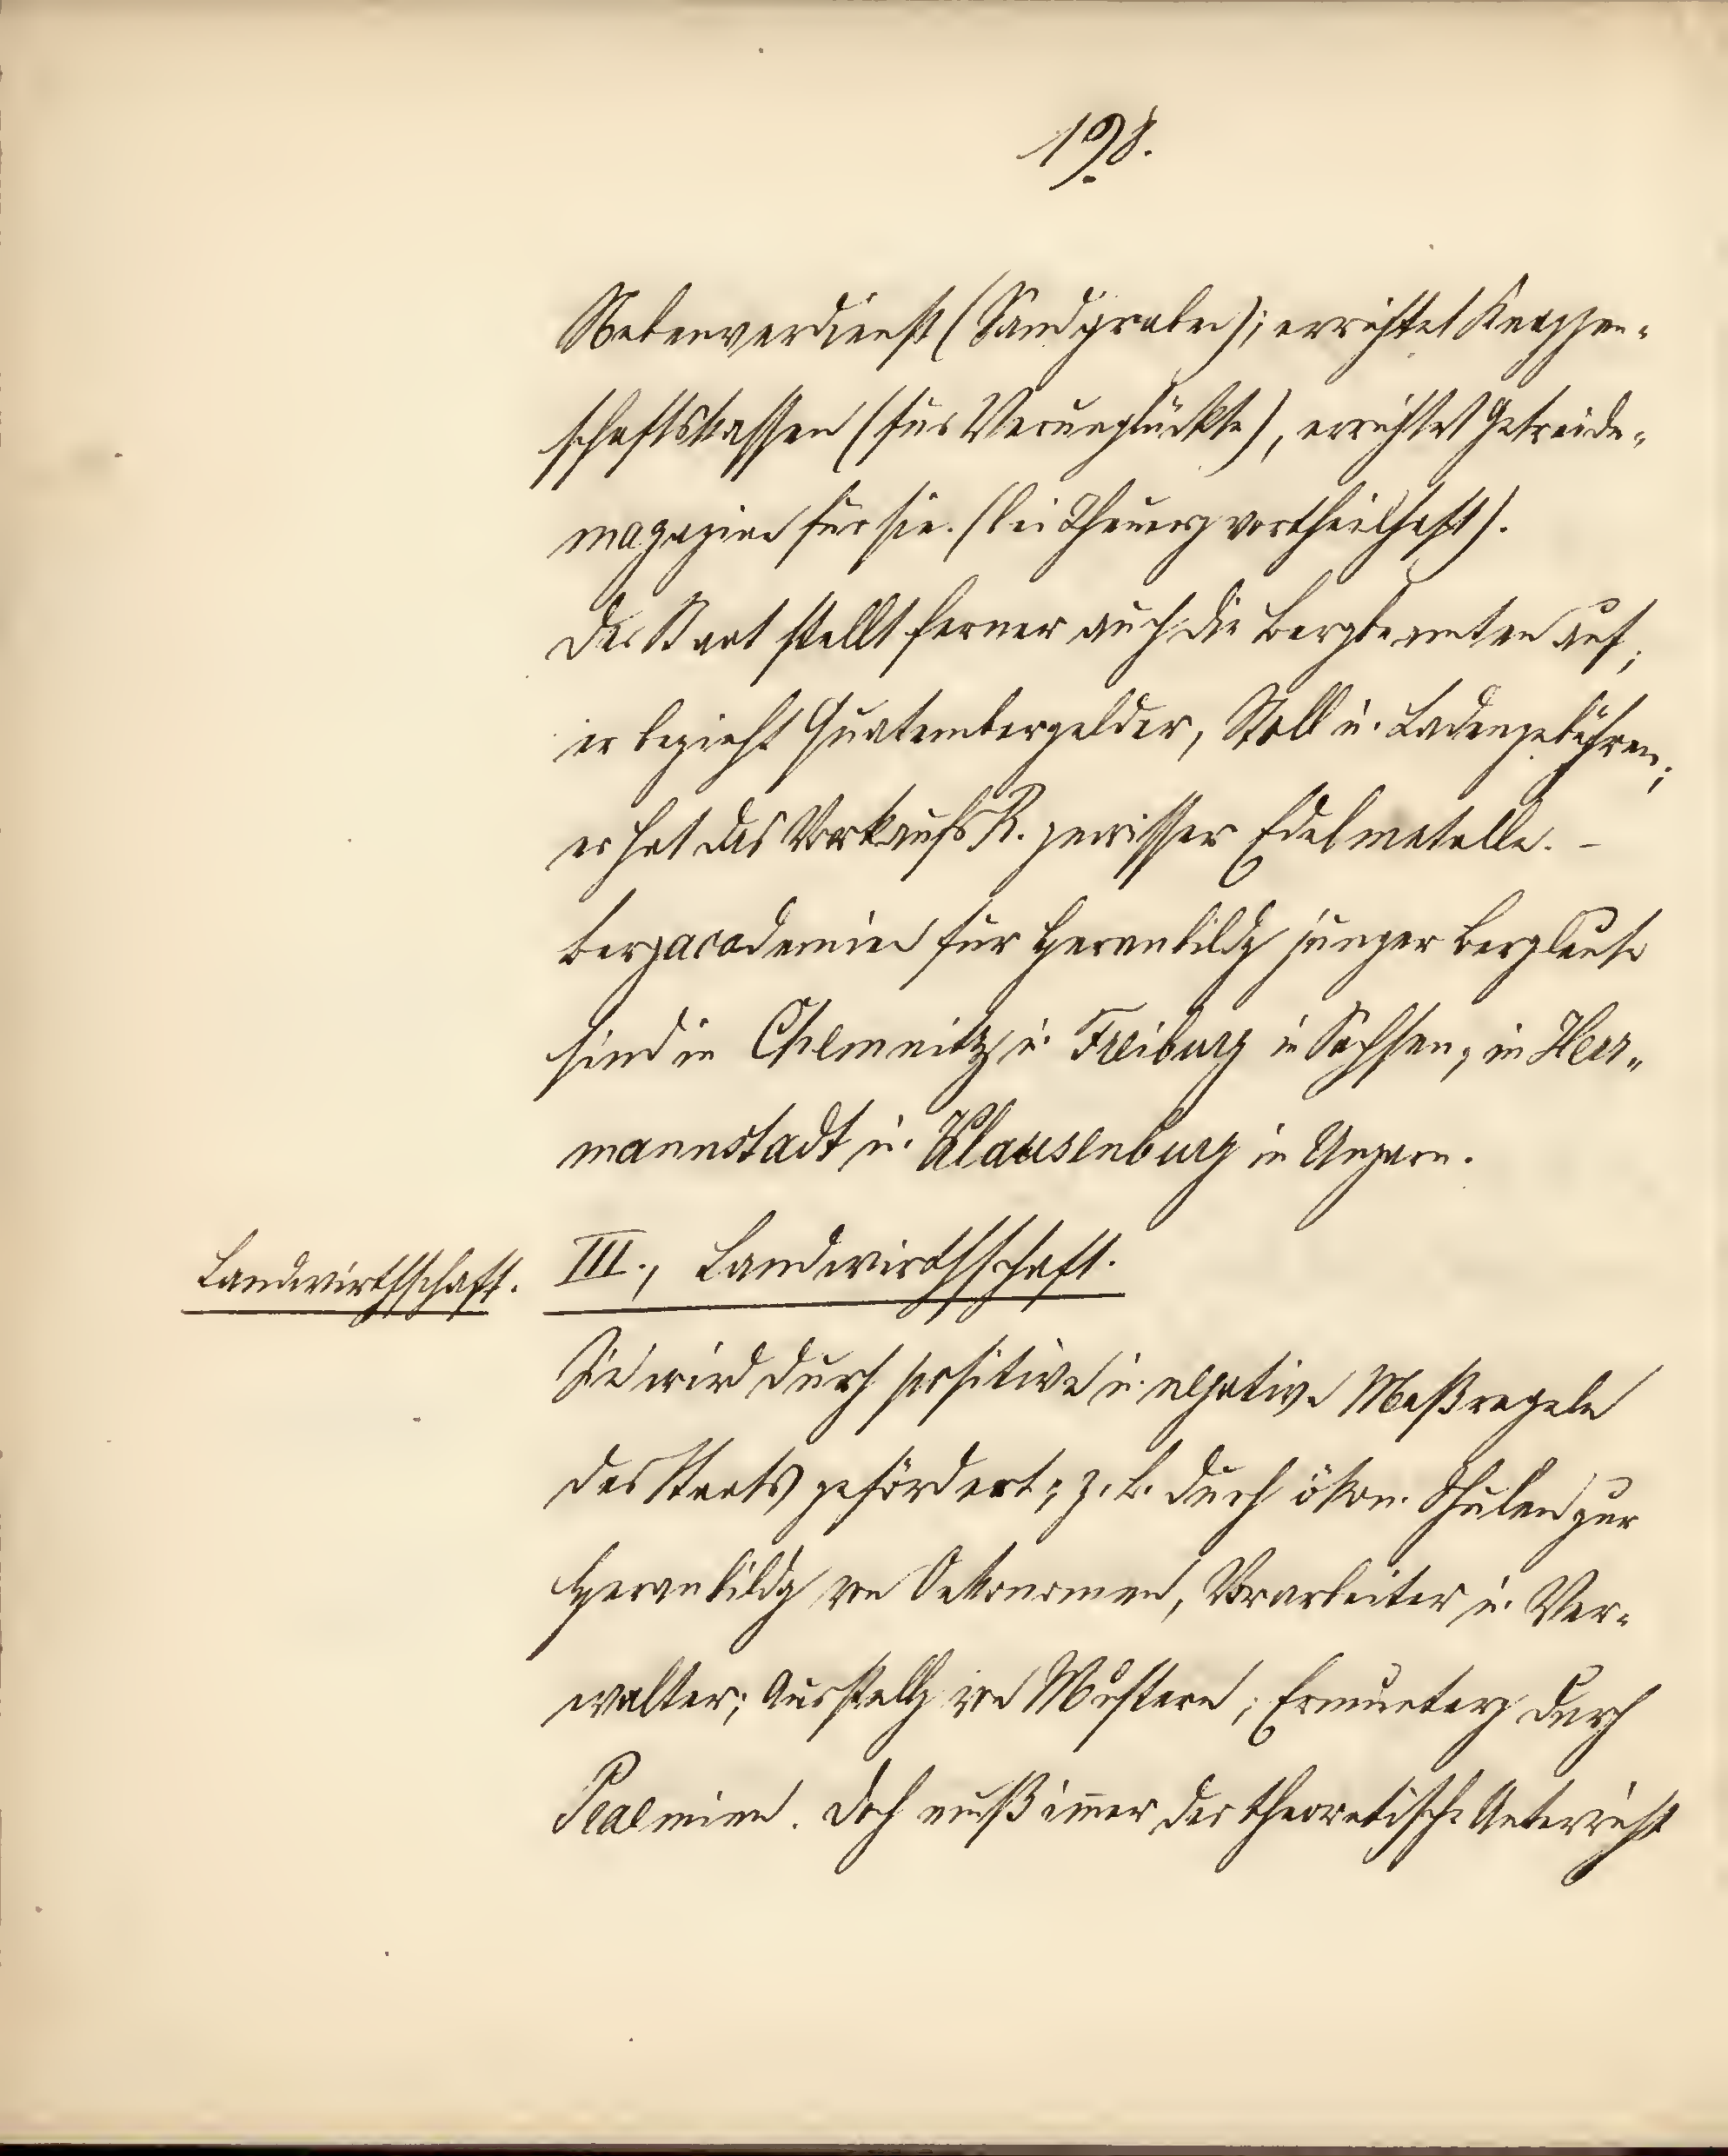 198.
Nebenverdienst (Sandgraben); errichtet Knappen-
schaftskassen (für Verunglückte), errichtet Getreide-
magazine für sie. (bei Theuerg vortheilhaft).
Der Staat stellt ferner auch die Bergbeamten auf;
er bezieht Quatembergelder, Stoll u. Ladengebühren;
er hat das VorkaufsR. gewisser Edelmetalle. –
Bergacademien für Heranbildg junger Bergleute
sind in Chemnitz u. Freiburg in Sachsen; in Herr-
mannstadt u. Klausenburg in Ungarn.
Landwirthschaft.
III., Landwirthschaft.
Sie wird durch positive u. negative Maßregeln
des Staats gefördert; z. B. durch ökon. Schulen zur
Heranbildg von Oekonomen, Vorarbeiter u. Ver-
walter; Ausstellg von Mustern; Ermunterg durch
Praemien. Doch muß immer der theoretische Unterricht